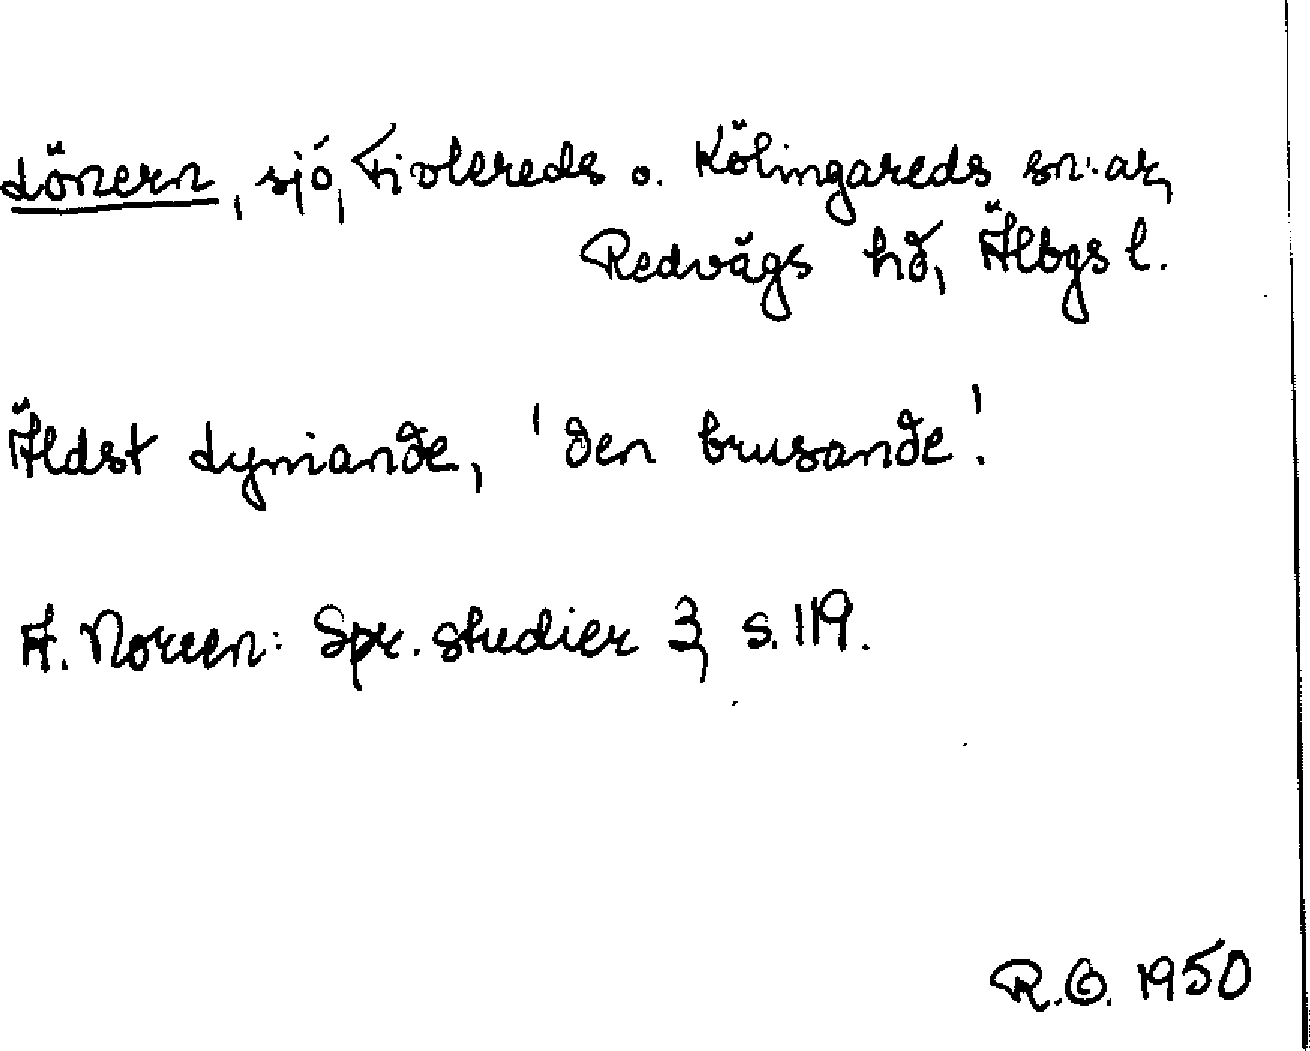 Lönern, sjö, Fivlereds o. Kölingareds sn:ar,
Redvägs hd, Älbgs l.
Äldst dyniande, 'den brusande'.
A. Noreen: Spr. studier 3, s. 119.
R.G. 1950